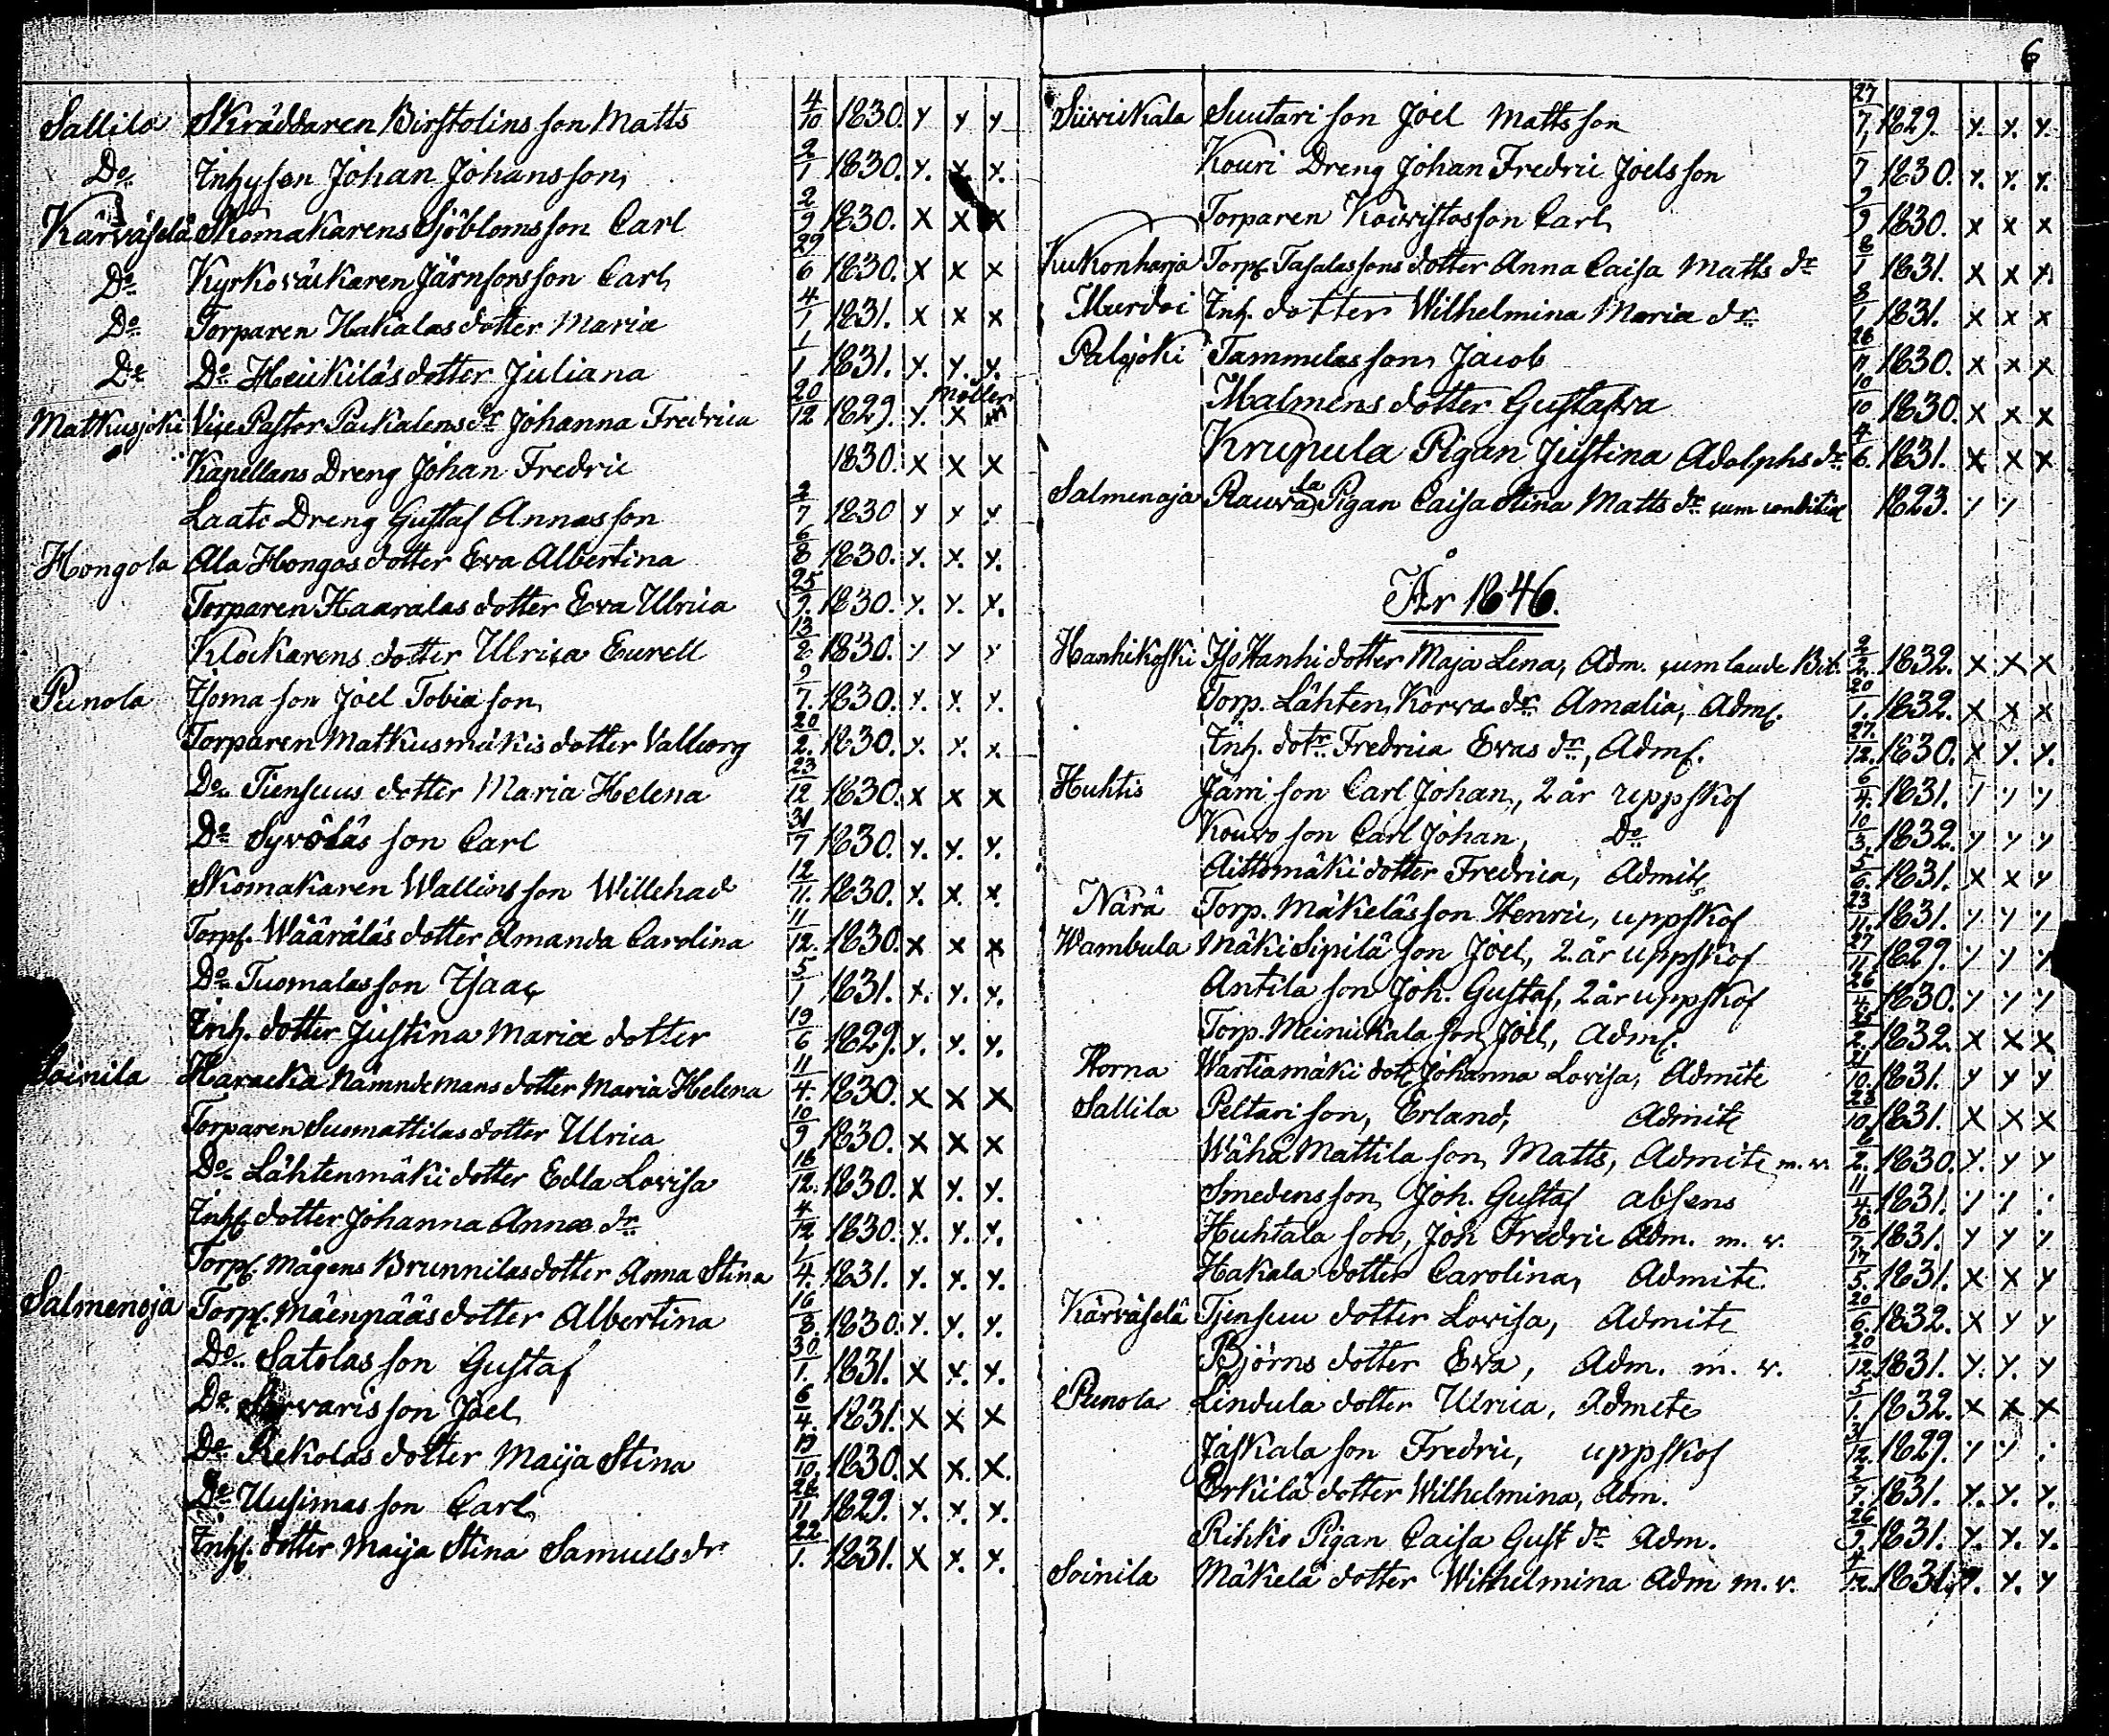 Sallila Skräddaren Birstolins son Matts 4/10 1830. y y y
Do Inhyson Johan Johansson 2/1 1830. y. x. y.
Kärväselä Skomakarens Sjöbloms son Carl 2/9 1830. x x x
Do Kyrkoväckaren Järnforsson Carl 29/6 1830. x x x
Do Torparen Hakalas dotter Maria 4/1 1831. x x x
Do Do Heikiläs dotter Juliana 1/1 1831. y. y. y.
Möller
Matkusjoki Vice Pastor Packalens dr Johanna Fredrica 20/12 1829. y. x x
Kapellans Dreng Johan Fredric 1830. x x x
Laati Dreng Gustaf Annasson 2/7 1830 y y y
Hongola Ala Hongos dotter Eva Albertina 6/8 1830. y. x. y.
Torparen Haaralas dotter Eva Ulrica 25/9. 1830. y. y. y.
Klockarens dotter Ulrica Eurell 13/2. 1830. y y y
Punola Isoma son Joel Tobiason 9/7. 1830. y. y. y.
Torparen Matkusmäkis dotter Valborg 20/2. 1830. y. x. x
Do Tiensuus dotter Maria Helena 23/12 1830. x x x
Do Syvöläs son Carl 31/7 1830. y. y. y.
Skomakaren Wallins son Willehad 12/11. 1830. y. x. x.
Torp. Wääräläs dotter Amanda Carolina 11/12. 1830. x x x
Do Tuomalas son Isaac 5/1 1831. x. y. y.
Inh. dotter Justina Mariæ dotter 19/6 1829. y. y. y.
Soinila Haracka Nämndemans dotter Maria Helena 11/4. 1830. x x x
Torparen Suomattilas dotter Ulrica 10/9 1830. x x x
Do Lähtenmäki dotter Edla Lovisa 18/12. 1830. x y. y.
Inh. dotter Johanna Annæ dr 4/12 1830. y. y. y.
Torp. mågens Brunnilas dotter Anna Stina 1/4. 1831. y. y. y.
Salmenoja Torp. Mäenpääs dotter Albertina 16/8. 1830. y. y. y.
Do Satolas son Gustaf 30/1. 1831. x y. y.
Do son Joel 6/4. 1831. x x x
Do Rekolas dotter Maija Stina 19/10. 1830. x x. x.
Do Uusimas son Carl 28/11 1829. y. y. y.
Inh. dotter Maija Stina Samuels dr 22/1. 1831. x y. y.
6
Siivikala Suutari son Joel Mattsson 27/7 1829. y. y. y.
Kouri Dreng Johan Fredric Joelsson 1/7 1830. y. y. y.
Torparen Koivistos son Carl 9/9 1830. x x x
Kukonharja Torp. Tasalas sons dotter Anna Caisa Matts dr 8/1 1831. x x y.
Murdoi Inh. dotter Wilhelmina Mariæ dr 8/1 1831. x x x
Palojoki Tammelas son Jacob 26/11 1830. x x x
Malmens dotter Gustafva 10/10 1830. x x x
Krupula Pigan Justina Adolphs dr 4/6. 1831. x x x
Salmenoja Rauvala Pigan Caisa Stina Matts dr cum conditia 1823. y y
År 1846.
Hanhikoski Iso Hanhi dotter Maja Lena, Adm. cum laude Bib. 2/2. 1832. x x x
Torp. Lähten Korva dr Amalia, Adm. 20/1. 1832. x x x
Inh. dotr Fredrica Evas dr, Adm. 27/12. 1830. x y. y.
Huhtis Jämi son Carl Johan, 2 år uppskof 6/4. 1831. y y y
Kouvo son Carl Johan, Do 10/3. 1832. y y y
Aittomäki dotter Fredrica, Admite 5/6. 1831. x x y
Närä Torp. Mäkeläs son Henric, uppskof 23/11. 1831. y y y
Wambula Mäki Sipilä son Joel, 2 år uppskof 27/11. 1829. y y y
Antila son Joh. Gustaf, 2 år uppskof 26/4. 1830. y y y
Torp. Meinikkala son Joel, Adm. 25/2. 1832. x x x
Horna Wartiamäki dotr Johanna Lovisa, Admite 21/10. 1831. y y y
Sallila Peltari son, Erland, Admite 23/10. 1831. x x x
Wähä Mattila son, Matts, Admite m. v. 6/2. 1830. y. y y
Smedens son, Joh. Gustaf absens 11/4. 1831. y y .
Huhtala son, Joh Fredric Adm. m. v. 18/7. 1831. y y y
Hakala dotter Carolina, Admite. 17/5. 1831. x x y
Kärväselä Tjensuu dotter Lovisa, Admite 20/6. 1832. x y y
Björns dotter Eva, Adm. m. v. 20/12. 1831. y. y. y
Punola Lindula dotter Ulrica, Admite 5/1. 1832. x x x
Jaskala son Fredric, uppskof 31/12. 1829. y y .
Erkilä dotter Wilhelmina, Adm. 2/7. 1831. y. y. y.
Rihko Pigan Caisa Gust dr Adm. 26/9. 1831. y. y. y.
Soinila Mäkelä dotter Wilhelmina Adm m. v. 4/12. 1831. y. y. y